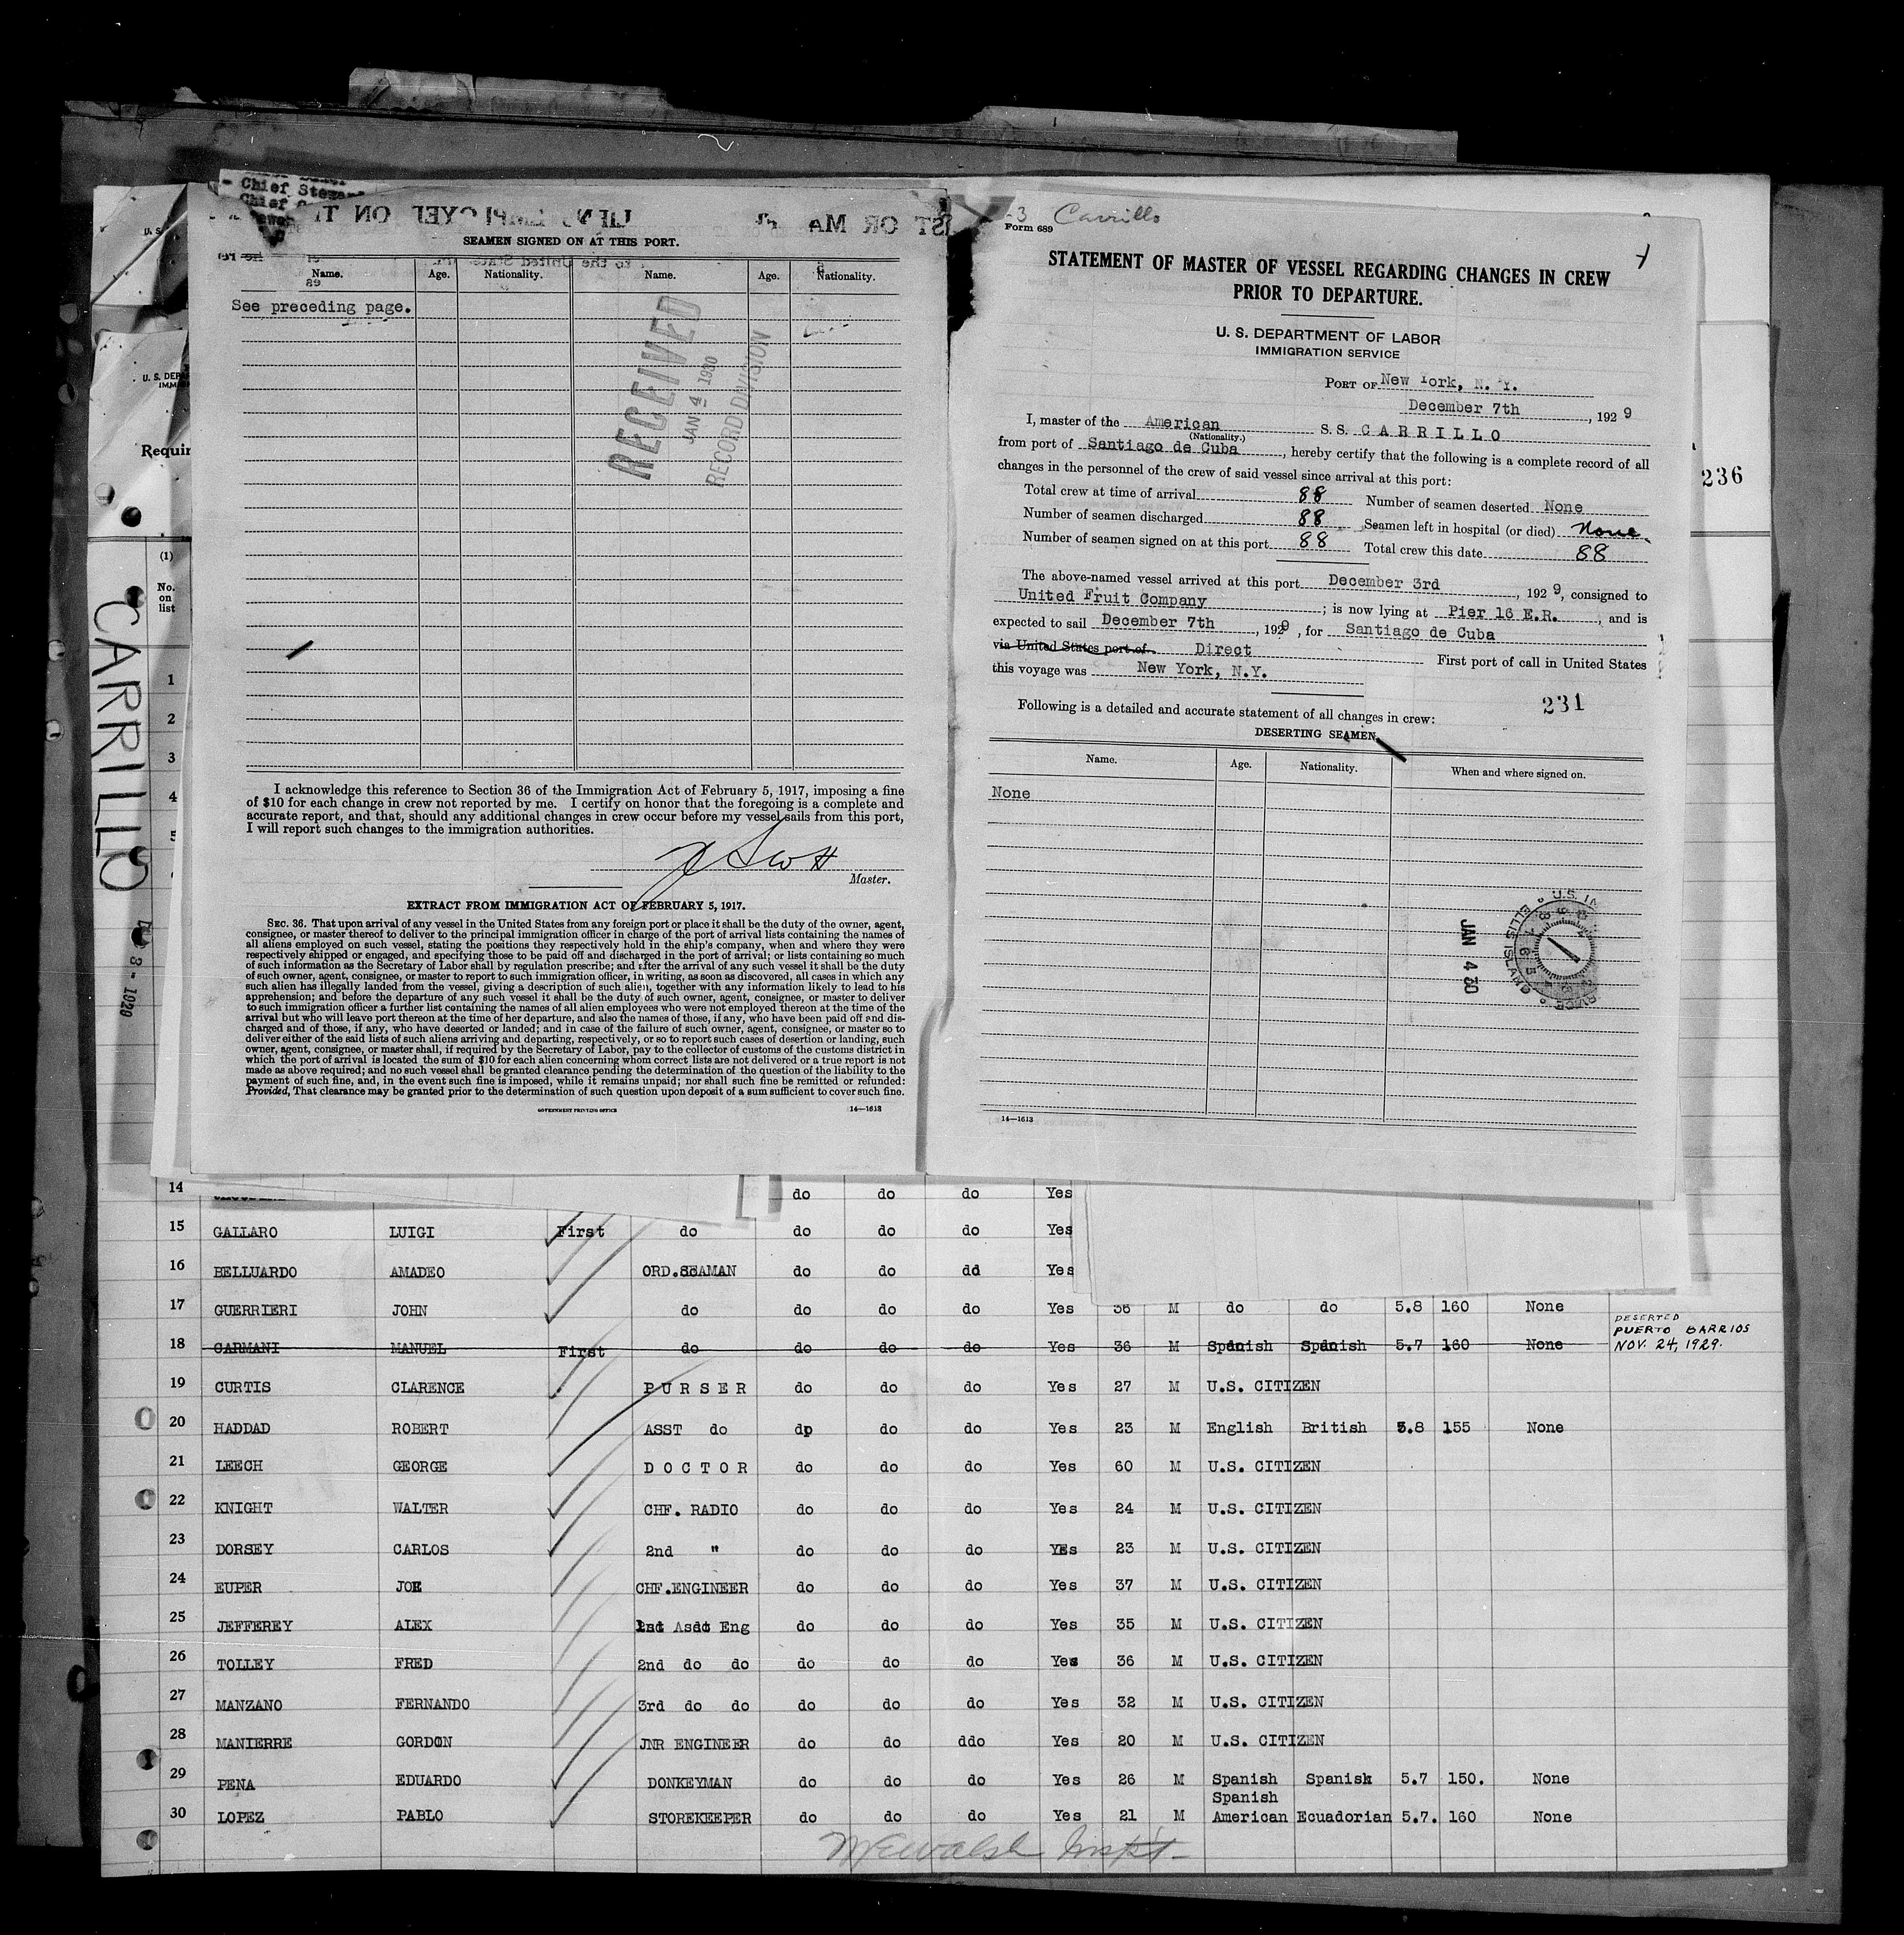 Chief Steward
Chief
SEAMEN SIGNED ON AT THIS PORT.
Name. Age. Nationality. Name. Age. Nationality.
See preceding page.
RECEIVED
JAN 4 1930
RECORD DIVISION
I acknowledge this reference to Section 36 of the Immigration Act of February 5, 1917, imposing a fine
of $10 for each change in crew not reported by me. I certify on honor that the foregoing is a complete and
accurate report, and that, should any additional changes in crew occur before my vessel sails from this port,
I will report such changes to the immigration authorities.
Scott
Master.
EXTRACT FROM IMMIGRATION ACT OF FEBRUARY 5, 1917.
SEC. 36. That upon arrival of any vessel in the United States from any foreign port or place it shall be the duty of the owner, agent,
consignee, or master thereof to deliver to the principal immigration officer in charge of the port of arrival lists containing the names of
all aliens employed on such vessel, stating the positions they respectively hold in the ship's company, when and where they were
respectively shipped or engaged, and specifying those to be paid off and discharged in the port of arrival; or lists containing so much
of such information as the Secretary of Labor shall by regulation prescribe; and after the arrival of any such vessel it shall be the duty
of such owner, agent, consignee, or master to report to such immigration officer, in writing, as soon as discovered, all cases in which any
such alien has illegally landed from the vessel, giving a description of such alien, together with any information likely to lead to his
apprehension; and before the departure of any such vessel it shall be the duty of such owner, agent, consignee, or master to deliver
to such immigration officer a further list containing the names of all alien employees who were not employed thereon at the time of the
arrival but who will leave port thereon at the time of her departure, and also the names of those, if any, who have been paid off and dis-
charged and of those, if any, who have deserted or landed; and in case of the failure of such owner, agent, consignee, or master so to
deliver either of the said lists of such aliens arriving and departing, respectively, or so to report such cases of desertion or landing, such
owner, agent, consignee, or master shall, if required by the Secretary of Labor, pay to the collector of customs of the customs district in
which the port of arrival is located the sum of $10 for each alien concerning whom correct lists are not delivered or a true report is not
made as above required; and no such vessel shall be granted clearance pending the determination of the question of the liability to the
payment of such fine, and, in the event such fine is imposed, while it remains unpaid; nor shall such fine be remitted or refunded:
Provided, That clearance may be granted prior to the determination of such question upon deposit of a sum sufficient to cover such fine.
GOVERNMENT PRINTING OFFICE 14—1613
Carrillo
Form 689
STATEMENT OF MASTER OF VESSEL REGARDING CHANGES IN CREW
PRIOR TO DEPARTURE.
U. S. DEPARTMENT OF LABOR
IMMIGRATION SERVICE
PORT OF New York, N. Y.
December 7th, 1929
I, master of the American S. S. CARRILLO
(Nationality.)
from port of Santiago de Cuba, hereby certify that the following is a complete record of all
changes in the personnel of the crew of said vessel since arrival at this port:
Total crew at time of arrival 88 Number of seamen deserted None
Number of seamen discharged 88 Seamen left in hospital (or died) None
Number of seamen signed on at this port 88 Total crew this date 88
The above-named vessel arrived at this port December 3rd, 1929, consigned to
United Fruit Company; is now lying at Pier 16 E.R., and is
expected to sail December 7th, 1929, for Santiago de Cuba
via United States port of Direct First port of call in United States
this voyage was New York, N.Y.
231
Following is a detailed and accurate statement of all changes in crew:
DESERTING SEAMEN
Name. Age. Nationality. When and where signed on.
None
JAN 4 30
ELLIS ISLAND
14—1613
236
U. S. DEPA
Requir
(1)
No.
on
list
CARRILLO
8 - 1929
1
2
3
4
5
14 do do do Yes
15 GALLARO LUIGI First do do do do Yes
16 BELLUARDO AMADEO ORD.SEAMAN do do dd Yes
17 GUERRIERI JOHN do do do do Yes 36 M do do 5.8 160 None
18 CARMANI MANUEL First do do do do Yes 36 M Spanish Spanish 5.7 160 None
DESERTED
PUERTO BARRIOS
NOV. 24, 1929.
19 CURTIS CLARENCE PURSER do do do Yes 27 M U.S. CITIZEN
20 HADDAD ROBERT ASST do do do do Yes 23 M English British 5.8 155 None
21 LEECH GEORGE DOCTOR do do do Yes 60 M U.S. CITIZEN
22 KNIGHT WALTER CHF. RADIO do do do Yes 24 M U.S. CITIZEN
23 DORSEY CARLOS 2nd " do do do YEs 23 M U.S. CITIZEN
24 EUPER JOE CHF.ENGINEER do do do Yes 37 M U.S. CITIZEN
25 JEFFEREY ALEX Eng do do do Yes 35 M U.S. CITIZEN
26 TOLLEY FRED 2nd do do do do do Yes 36 M U.S. CITIZEN
27 MANZANO FERNANDO 3rd do do do do do Yes 32 M U.S. CITIZEN
28 MANIERRE GORDON JNR ENGINEER do do ddo Yes 20 M U.S. CITIZEN
29 PENA EDUARDO DONKEYMAN do do do Yes 26 M Spanish Spanish 5.7 150. None
Spanish
30 LOPEZ PABLO STOREKEEPER do do do Yes 21 M American Ecuadorian 5.7. 160 None